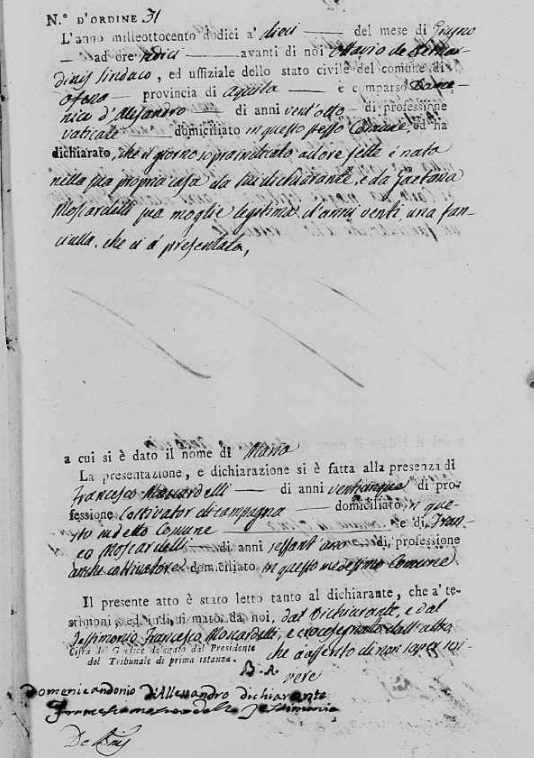 N.° D'ORDINE 31
L'anno milleottocento dodici a' dieci del mese di Giugno
ad ore sedici avanti di noi Ottavio de
sindaco, ed uffiziale dello stato civile del comune di
Ofena provincia di Aquila è comparso Dome-
nico d'Alesandro di anni vent'otto di professione
vaticale domiciliato in questo stesso Comune, ed ha
dichiarato, che il giorno sopraindicato ad ore sette è nata
nella sua propria casa da lui dichiarante, e da Gaetana
Moscardelli sua moglie legitima d'anni venti una fan-
ciulla, che ci à presentata,
a cui si è dato il nome di Maria
La presentazione, e dichiarazione si è fatta alla presenza di
Francesco Moscardelli di anni venticinque di pro-
fessione Coltivator di campagna domiciliato in que-
sto sudetto Comune e di Fran-
co Moscardelli di anni sessant di professione
anche coltivatore domiciliato in questo medesimo Comune
Il presente atto è stato letto tanto al dichiarante, che a' te-
stimonj, ed indi firmato da noi, dal Dichiarante, e dal
Testimonio Francesco Moscardelli, e crocesegnato dall'altro
Cifra del Giudice delegato dal Presidente
del Tribunale di prima istanza.
che à asserito di non saper scri-
vere
B. A
Domenicandonio d'Allessandro dichiarante
testimonio
De